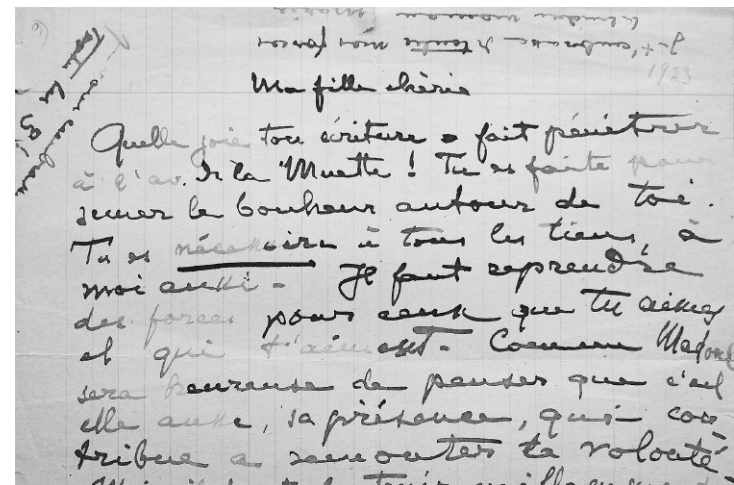 je t'embrasse de toutes mes forces
1923
Ma fille chérie
Quelle joie ton écriture a fait pénétrer
à l'av. de la Muette ! Tu es faite pour
semer le bonheur autour de toi.
Tu es nécessaire à tous les tiens, à
moi aussi - Il faut reprendre
des forces pour ceux que tu aimes
et qui t'aiment. Comme Madame
sera heureuse de penser que c'est
elle aussi, sa présence, qui con
tribue a remonter ta volonté -